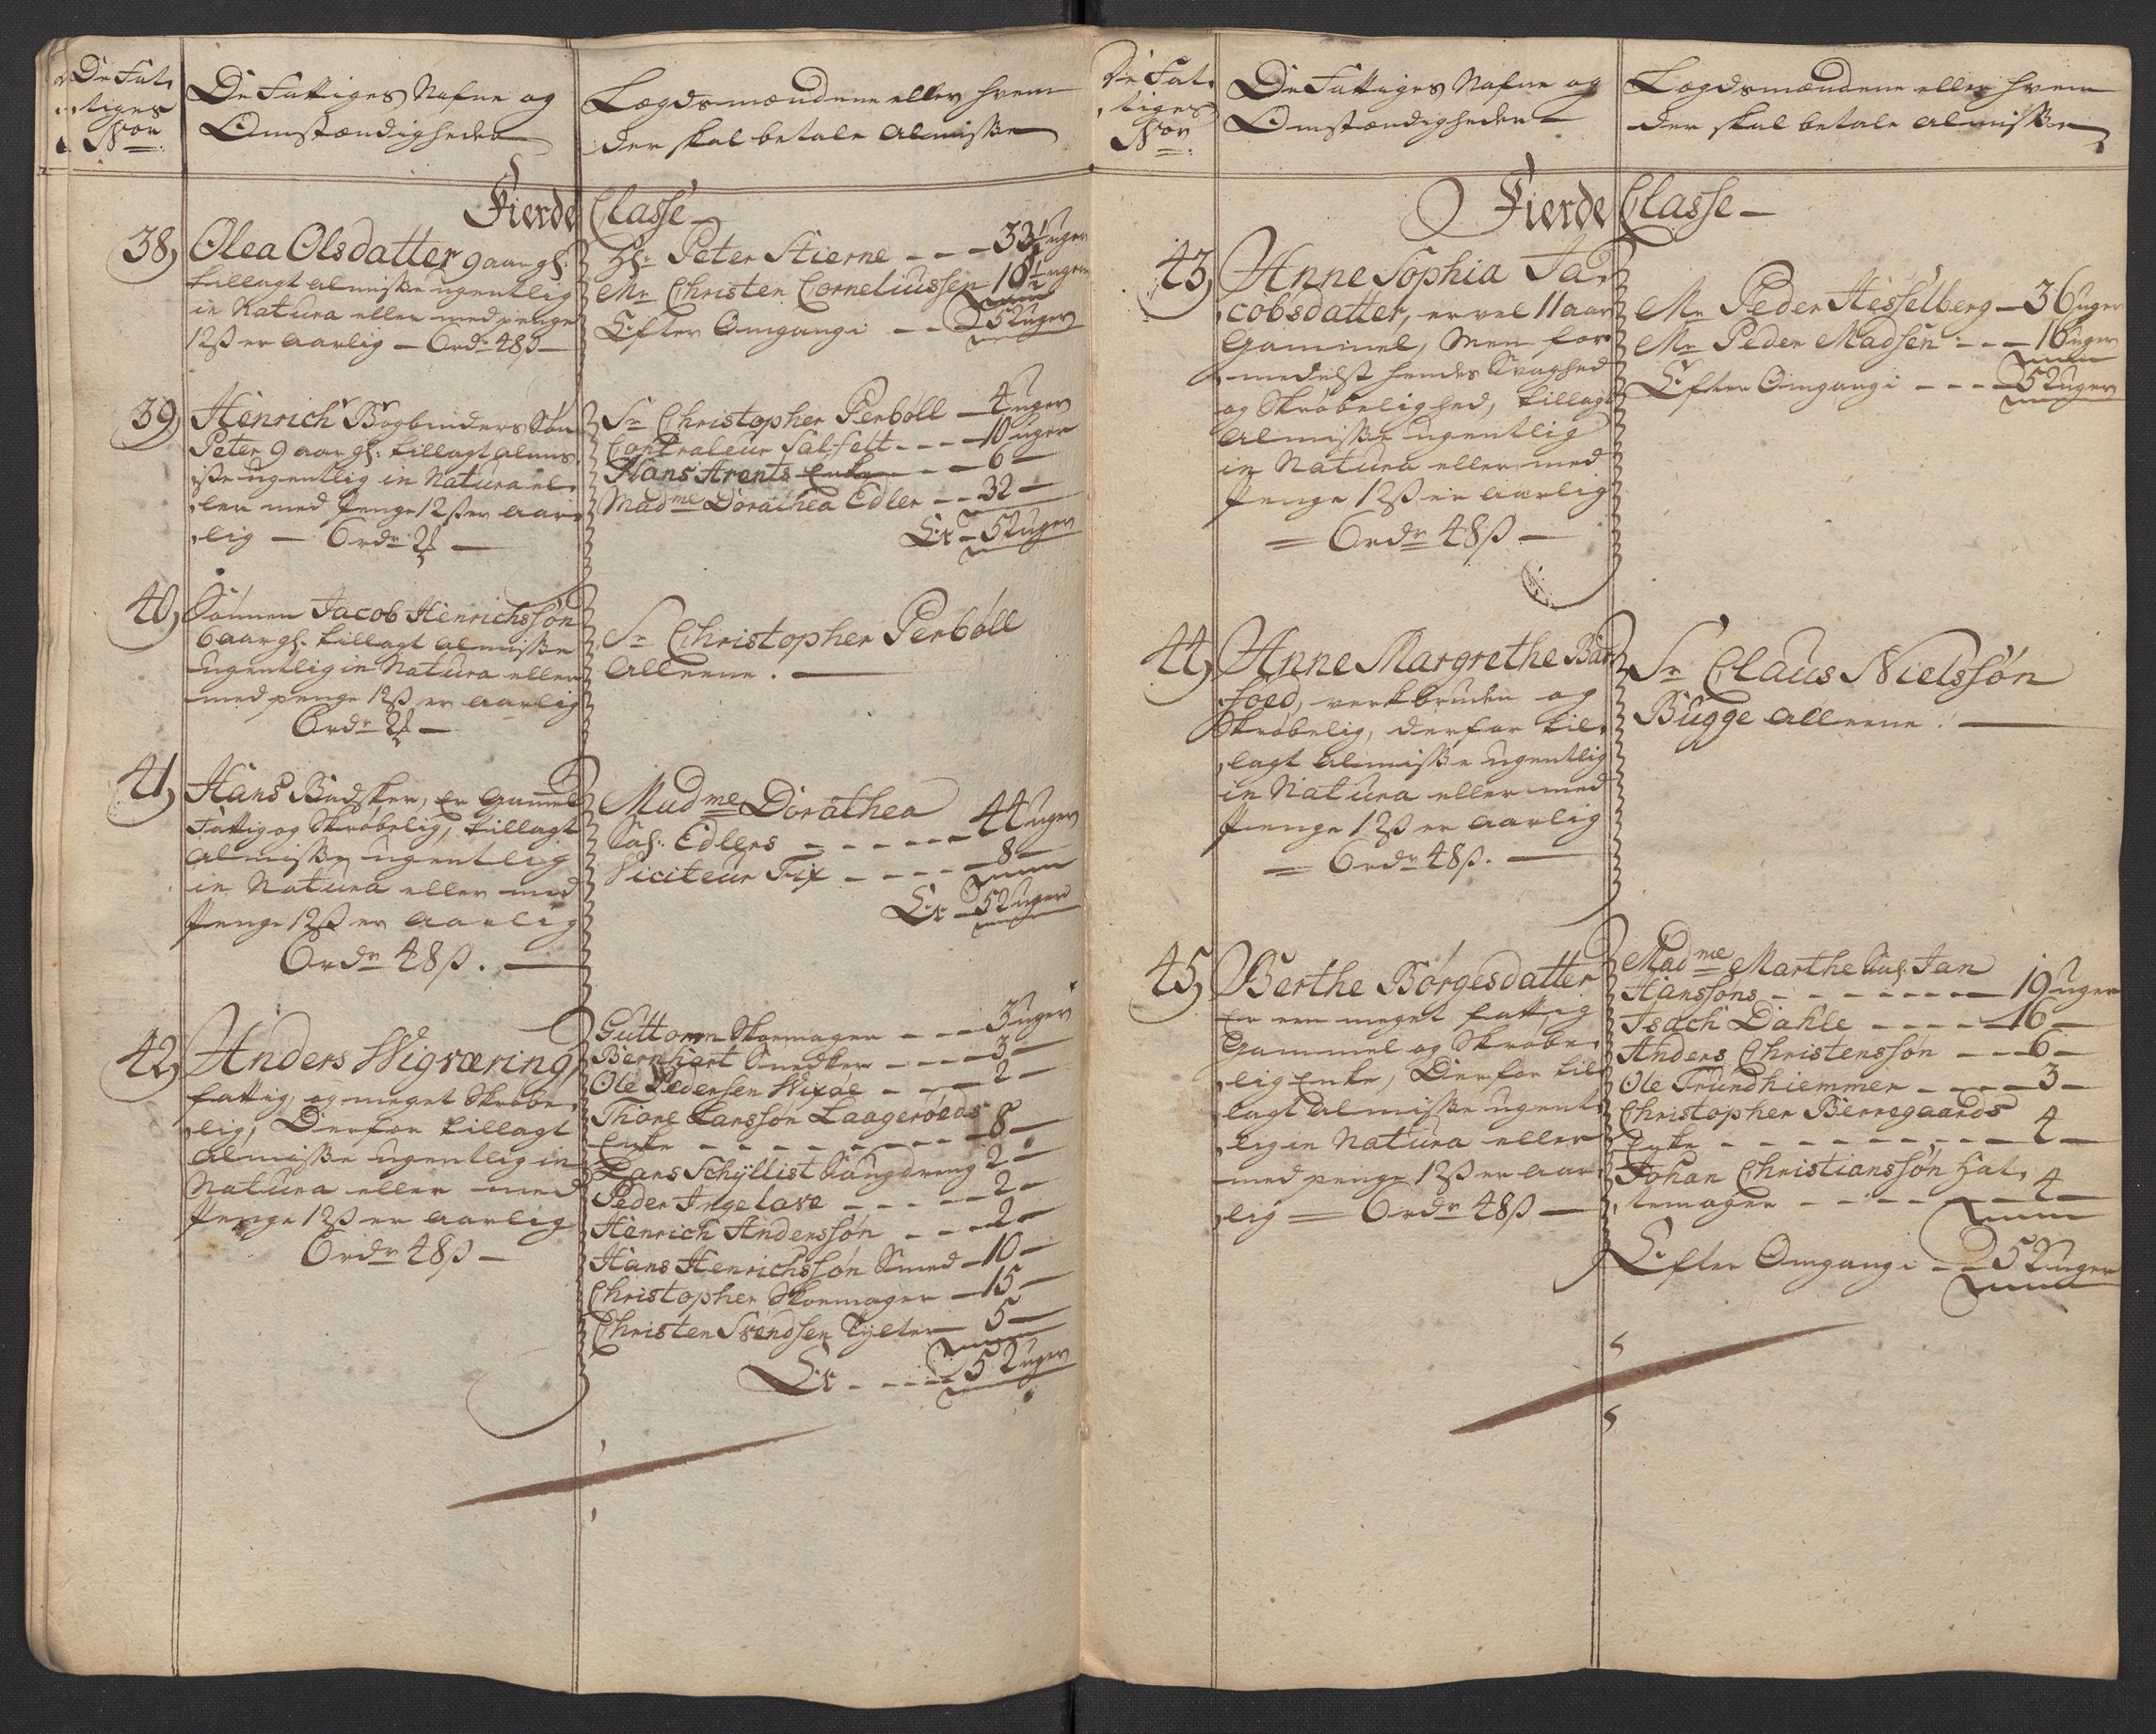 De Fat,
,tiges
Nor
De Fattiges Nafne og
Omstændigheder
Lægdsmændene eller hvem
der skal betale Almisse
Fierde Classe
38, Olea Olsdatter 9 aar gl:
tillagt almisse ugentlig
in Natura eller med penge
12ß er aarlig – Ordr 48ß –
Hr Peter Stierne – – – 33½ uger
Mr Christen Corneliussen 18½ uger
Efter Omgang i – – 52 uger
39, Henrich Bogbinders Søn
Peter 9 aar gl: tillagt almis,
,sse ugentlig in Natura el,
,ler med Penge 12ß er aar,
,lig – Ordr
Sr Christopher Perbøll – 4 uger
Contraleur Salfelt – – – 10 uger
Hans Arents Enke – – – 6 –
Madme Dorathea Edler – – 32 –
Er – 52 uger
40, Sønnen Jacob Henrichssøn
6 aar gl: tillagt almisse
ugentlig in Natura eller
med penge 12ß er aarlig
Ordr
Sr Christopher Perbøll
Alleene. –
41, Hans Bødsker, Er Gammel
Fattig og Skrøbelig, tillagt
Almisse ugentlig
in Natura eller med
Penge 12ß er aarlig
Ordr 48ß. –
Madme Dorathea
Sal: Edlers – – – – – – 44 uger
Viciteur Fix – – – – – 8 –
Er – 52 uger
42, Anders Wigværing,
fattig og meget Skrøbe,
,lig, Derfor tillagt
almisse ugentlig in
Natura eller med
Penge 12ß er aarlig
Ordr 48ß –
Guttorm Skoemager – – – 3 uger
Bernhart Snedker – – – – 3 –
Ole Pedersen Wixøe – – – 2 –
Thore Larssøn Laagerøeds
Enke – – – – – – – – – 8 –
Lars Schÿllist Saugdreng 2 –
Peder Ingelave – – – – – 2 –
Henrich Anderssøn – – – 2 –
Hans Henrichssøn Smed – 10 –
Christopher Skoemager – 15 –
Christen Svendsen – 5 –
Er – – – – 52 uger
De Fat,
,tiges
Nor
De Fattiges Nafne og
Omstændigheder –
Lægdsmændene eller hvem
der skal betale almisse
Fierde Classe –
43, Anne Sophia Ja,
,cobsdatter, er vel 11 aar
Gammel, Men for,
,medelst hendes Svaghed
og Skrøbelighed, tillagt
Almisse ugentlig
in Natura eller med
Penge 12ß er aarlig
= Ordr 48ß –
Mr Peder Hesselberg – 36 uger
Mr Peder Madsen – – – 16 uger
Efter Omgang i – – – 52 uger
44, Anne Margrethe Bar,
,foed, verkbruden og
Skrøbelig, derfor til,
,lagt Almisse ugentlig
in Natura eller med
Penge 12ß er aarlig
= Ordr 48ß. –
Sr Claus Nielssøn
Bugge alleene. –
45, Berthe Børgesdatter
Er een meget fattig
Gammel og Skrøbe,
,lig Enke, Derfor til,
lagt Almisse ugent,
,lig in Natura eller
med penge 12ß er aar,
,lig = Ordr 48ß –
Madme Marthe Sal: Jan
Hanssøns – – – – – – – 19 uger
Isach Dahle – – – – – 16 –
Anders Christenssøn – – 6 –
Ole Trundhiemmer – – – – 3 –
Christopher Berregaards
Enke – – – – – – – – – 4 –
Johan Christianssøn Hat,
,temager – – – – – – – 4 –
Efter Omgang i – – 52 uger